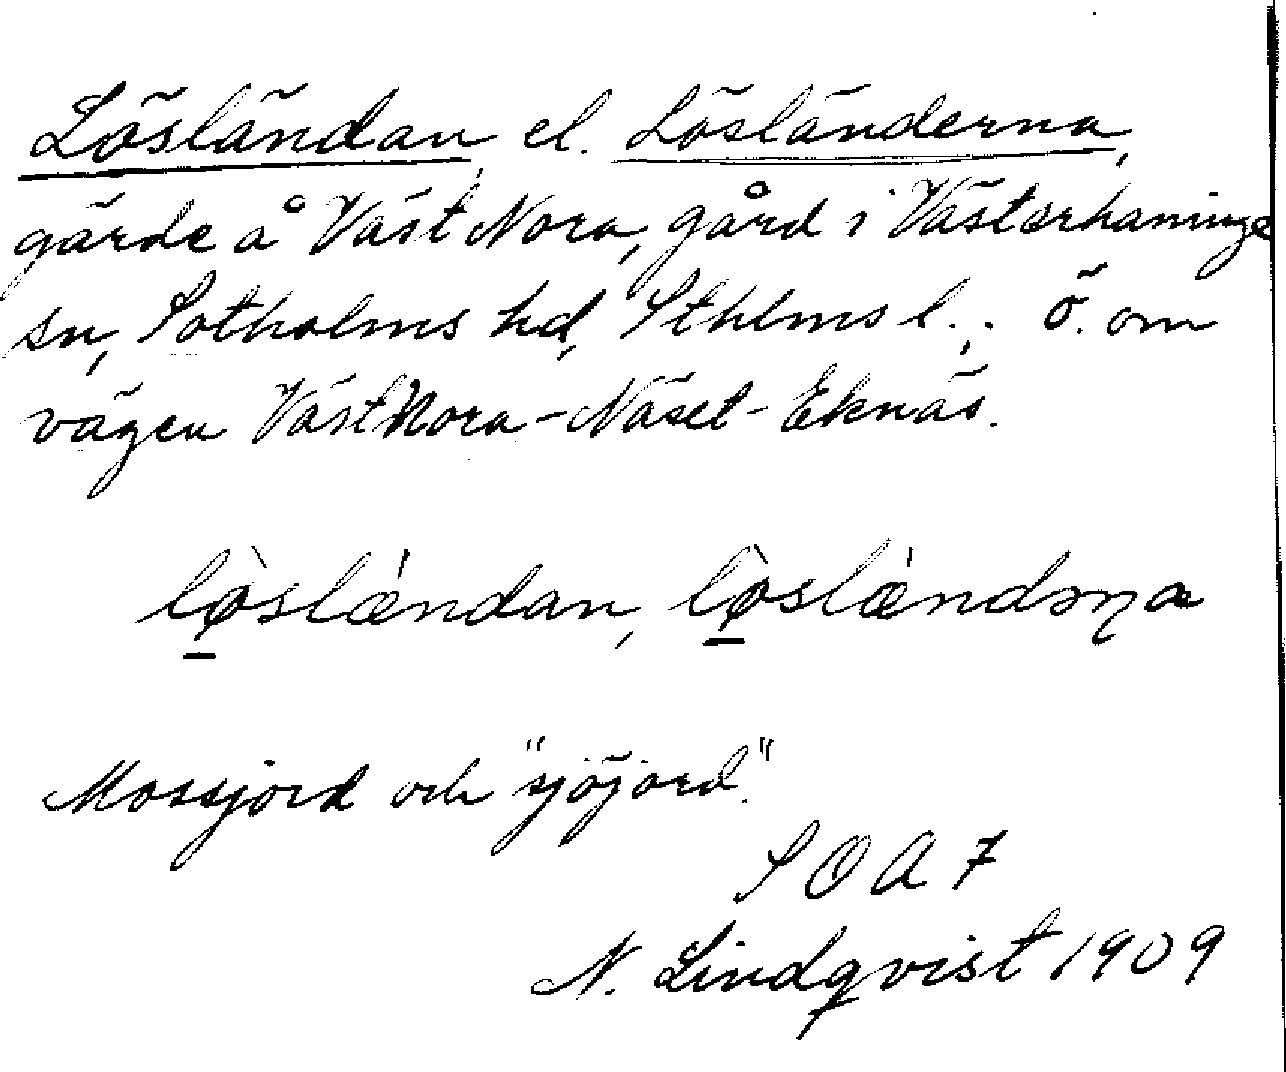 Lösländan el. Lösländerna,
gärde å Väst Nora, gård i Västerhaninge
sn, Sotholms hd, Sthlms l.; ö. om
vägen Väst Nora-Näset-Eknäs.
lø̱̀slæ̀ndan, lø̱̀slæ̀ndəɳa
Mossjord och "sjöjord".
SOA 7
N. Lindqvist 1909